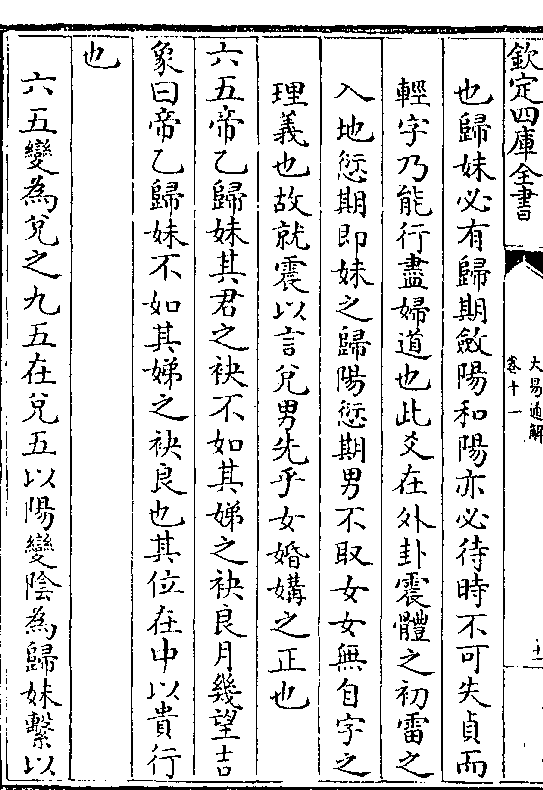 欽定四庫全書
大易通解
卷十一
十一
也歸妹必有歸期斂陽和陽亦必待時不可失貞而
輕字乃能行盡婦道也此爻在外卦震體之初雷之
入地愆期即妹之歸陽愆期男不取女女無自字之
理義也故就震以言兌男先乎女婚媾之正也
六五帝乙歸妹其君之袂不如其娣之袂良月幾望吉
象曰帝乙歸妹不如其娣之袂良也其位在中以貴行
也
六五變為兌之九五在兌五以陽變陰為歸妹繫以